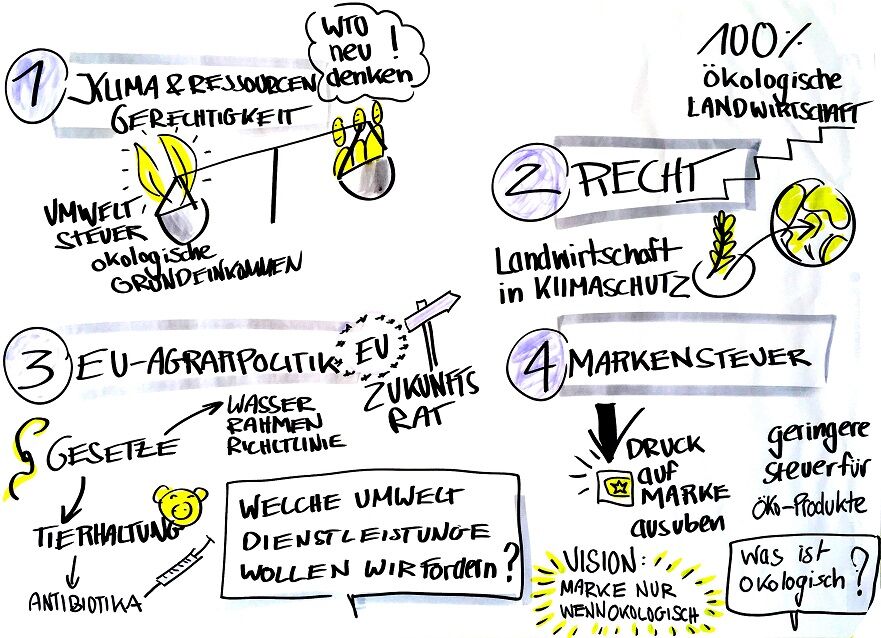 1
KLIMA & RESSOURCEN
GERECHTIGKEIT
WTO
neu !
denken
UMWELT
STEUER
ökologische
GRUNDEINKOMMEN
100%
ökologische
LANDWIRTSCHAFT
2 RECHT
Landwirtschaft
in KLIMASCHUTZ
3 EU-AGRARPOLITIK
EU
ZUKUNFTS
RAT
§ GESETZE
WASSER
RAHMEN
RICHTLINIE
TIERHALTUNG
ANTIBIOTIKA
WELCHE UMWELT
DIENSTLEISTUNGE
WOLLEN WIR fördern?
4 MARKENSTEUER
DRUCK
auf
MARKE
ausüben
geringere
Steuer für
ÖKO-Produkte
VISION:
MARKE NUR
WENN ÖKOLOGISCH
Was ist
ökologisch?